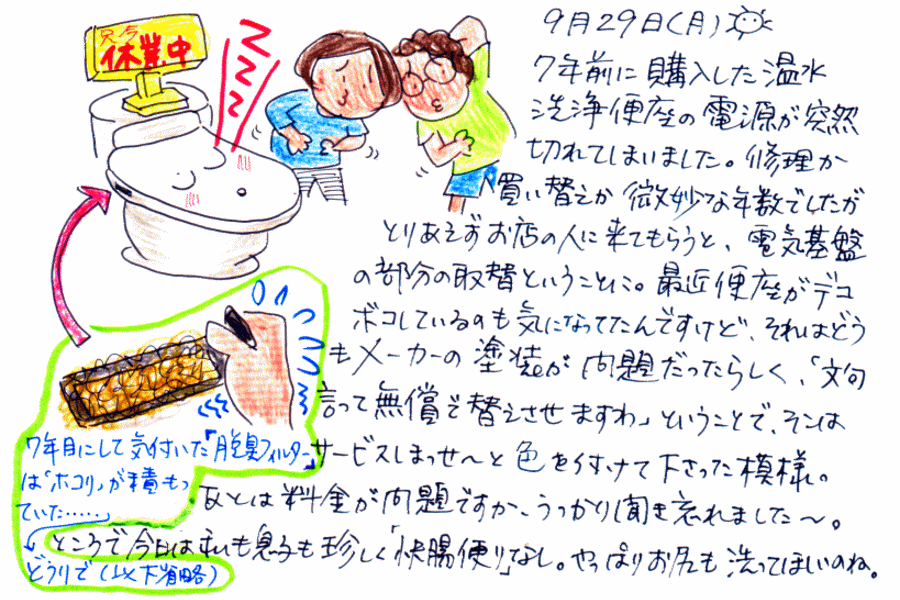 只今
休業中
9月29日(月)
7年前に購入した温水
洗浄便座の電源が突然
切れてしまいました。修理か
買い替えか微妙な年数でしたが
とりあえずお店の人に来てもらうと、電気基盤
の部分の取替ということに。最近便座がデコ
ボコしているのも気になってたんですけど、それはどう
もメーカーの塗装が問題だったらしく、「文句
言って無償で替えさせますわ」ということで、そこは
サービスしまっせ〜と色を付けて下さった模様。
あとは料金が問題ですが、うっかり聞き忘れました〜。
ところで今日は私も息子も珍しく「快腸便り」なし。やっぱりお尻も洗ってほしいのね。
7年目にして気付いた「脱臭フィルター」
は「ホコリ」が積もっ
ていた……
どうりで(以下省略)